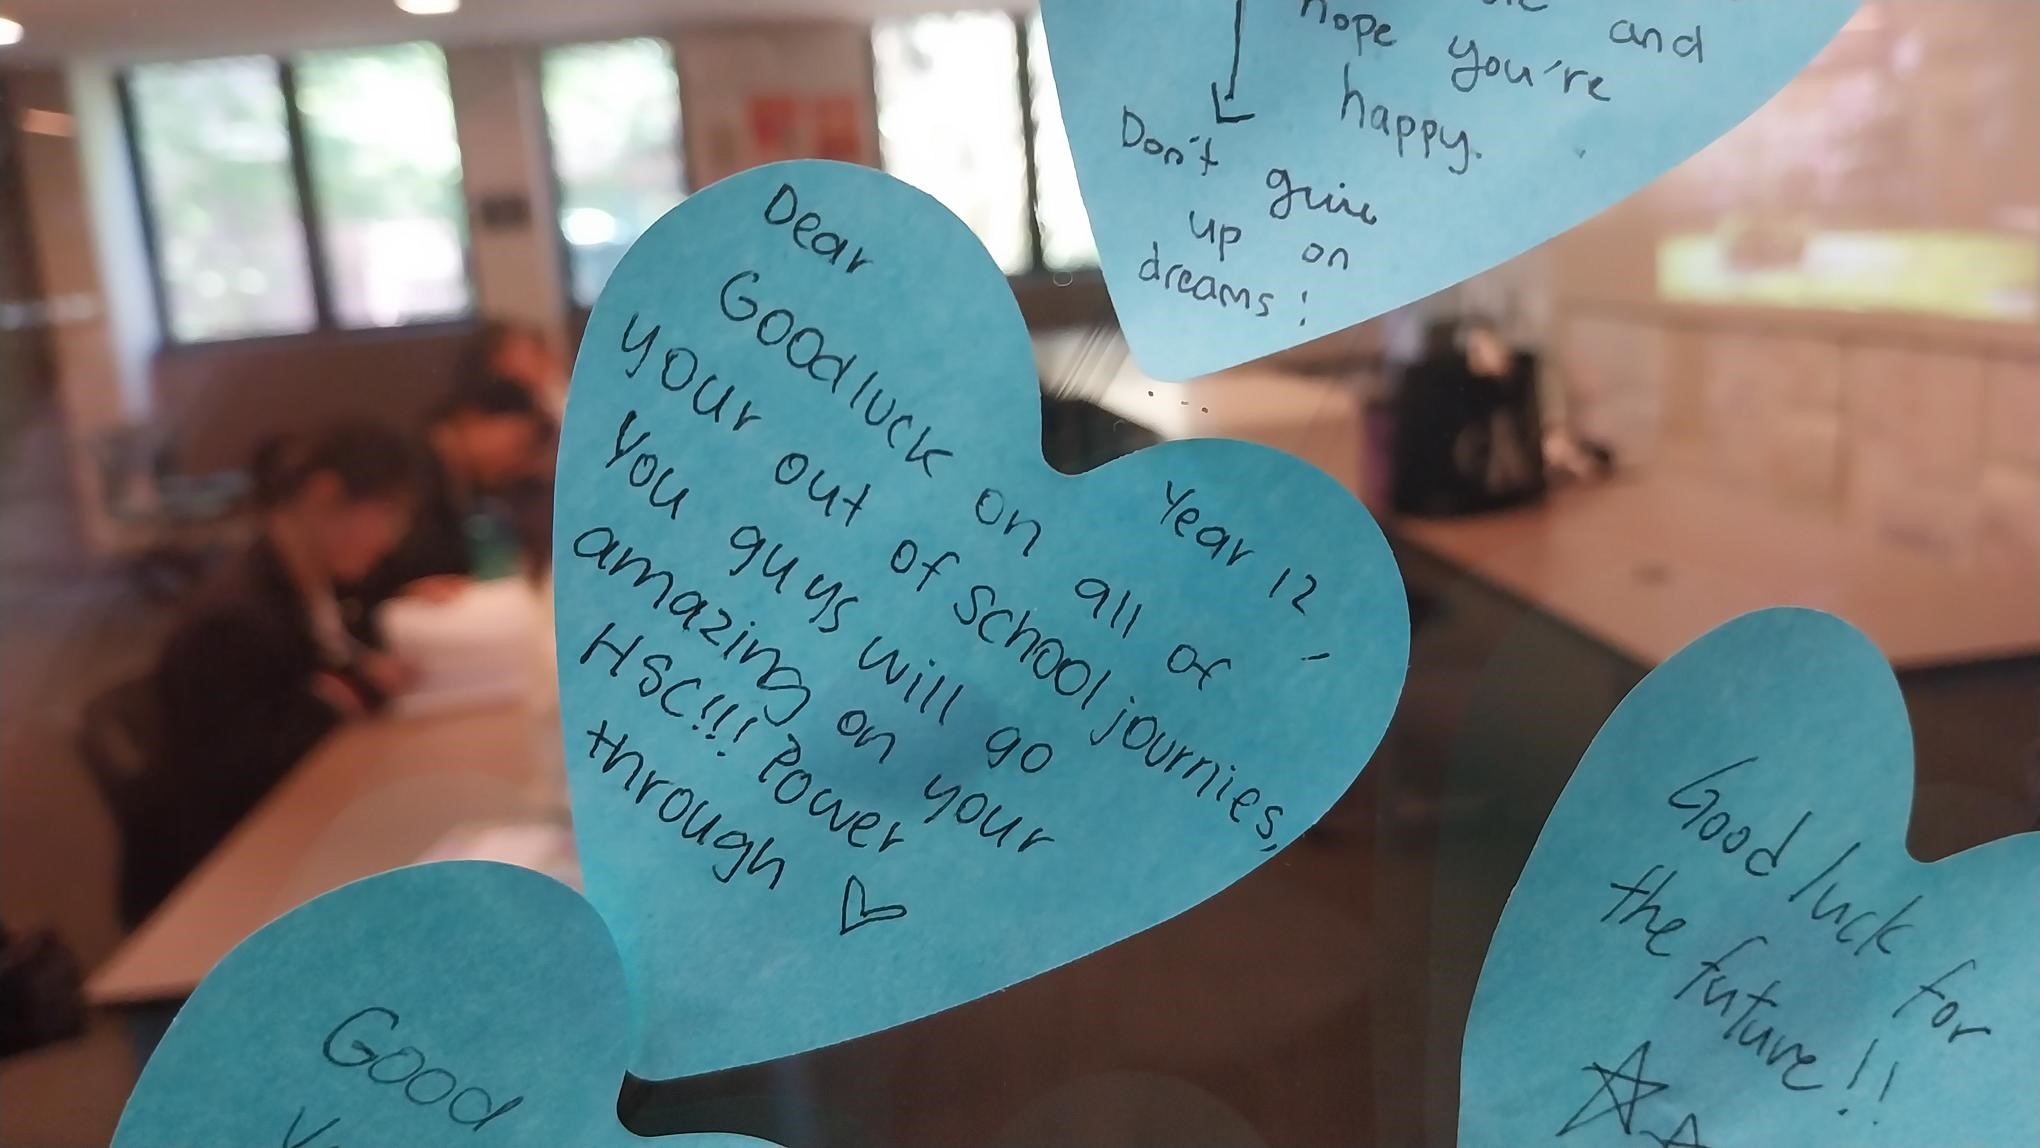 and
hope you're
happy.
Don't give
up on
dreams!
Dear Year 12,
Good luck on all of
your out of school journies,
You guys will go
amazing on your
HSC!!! Power
through ♡
Good luck for
the future!!
Good